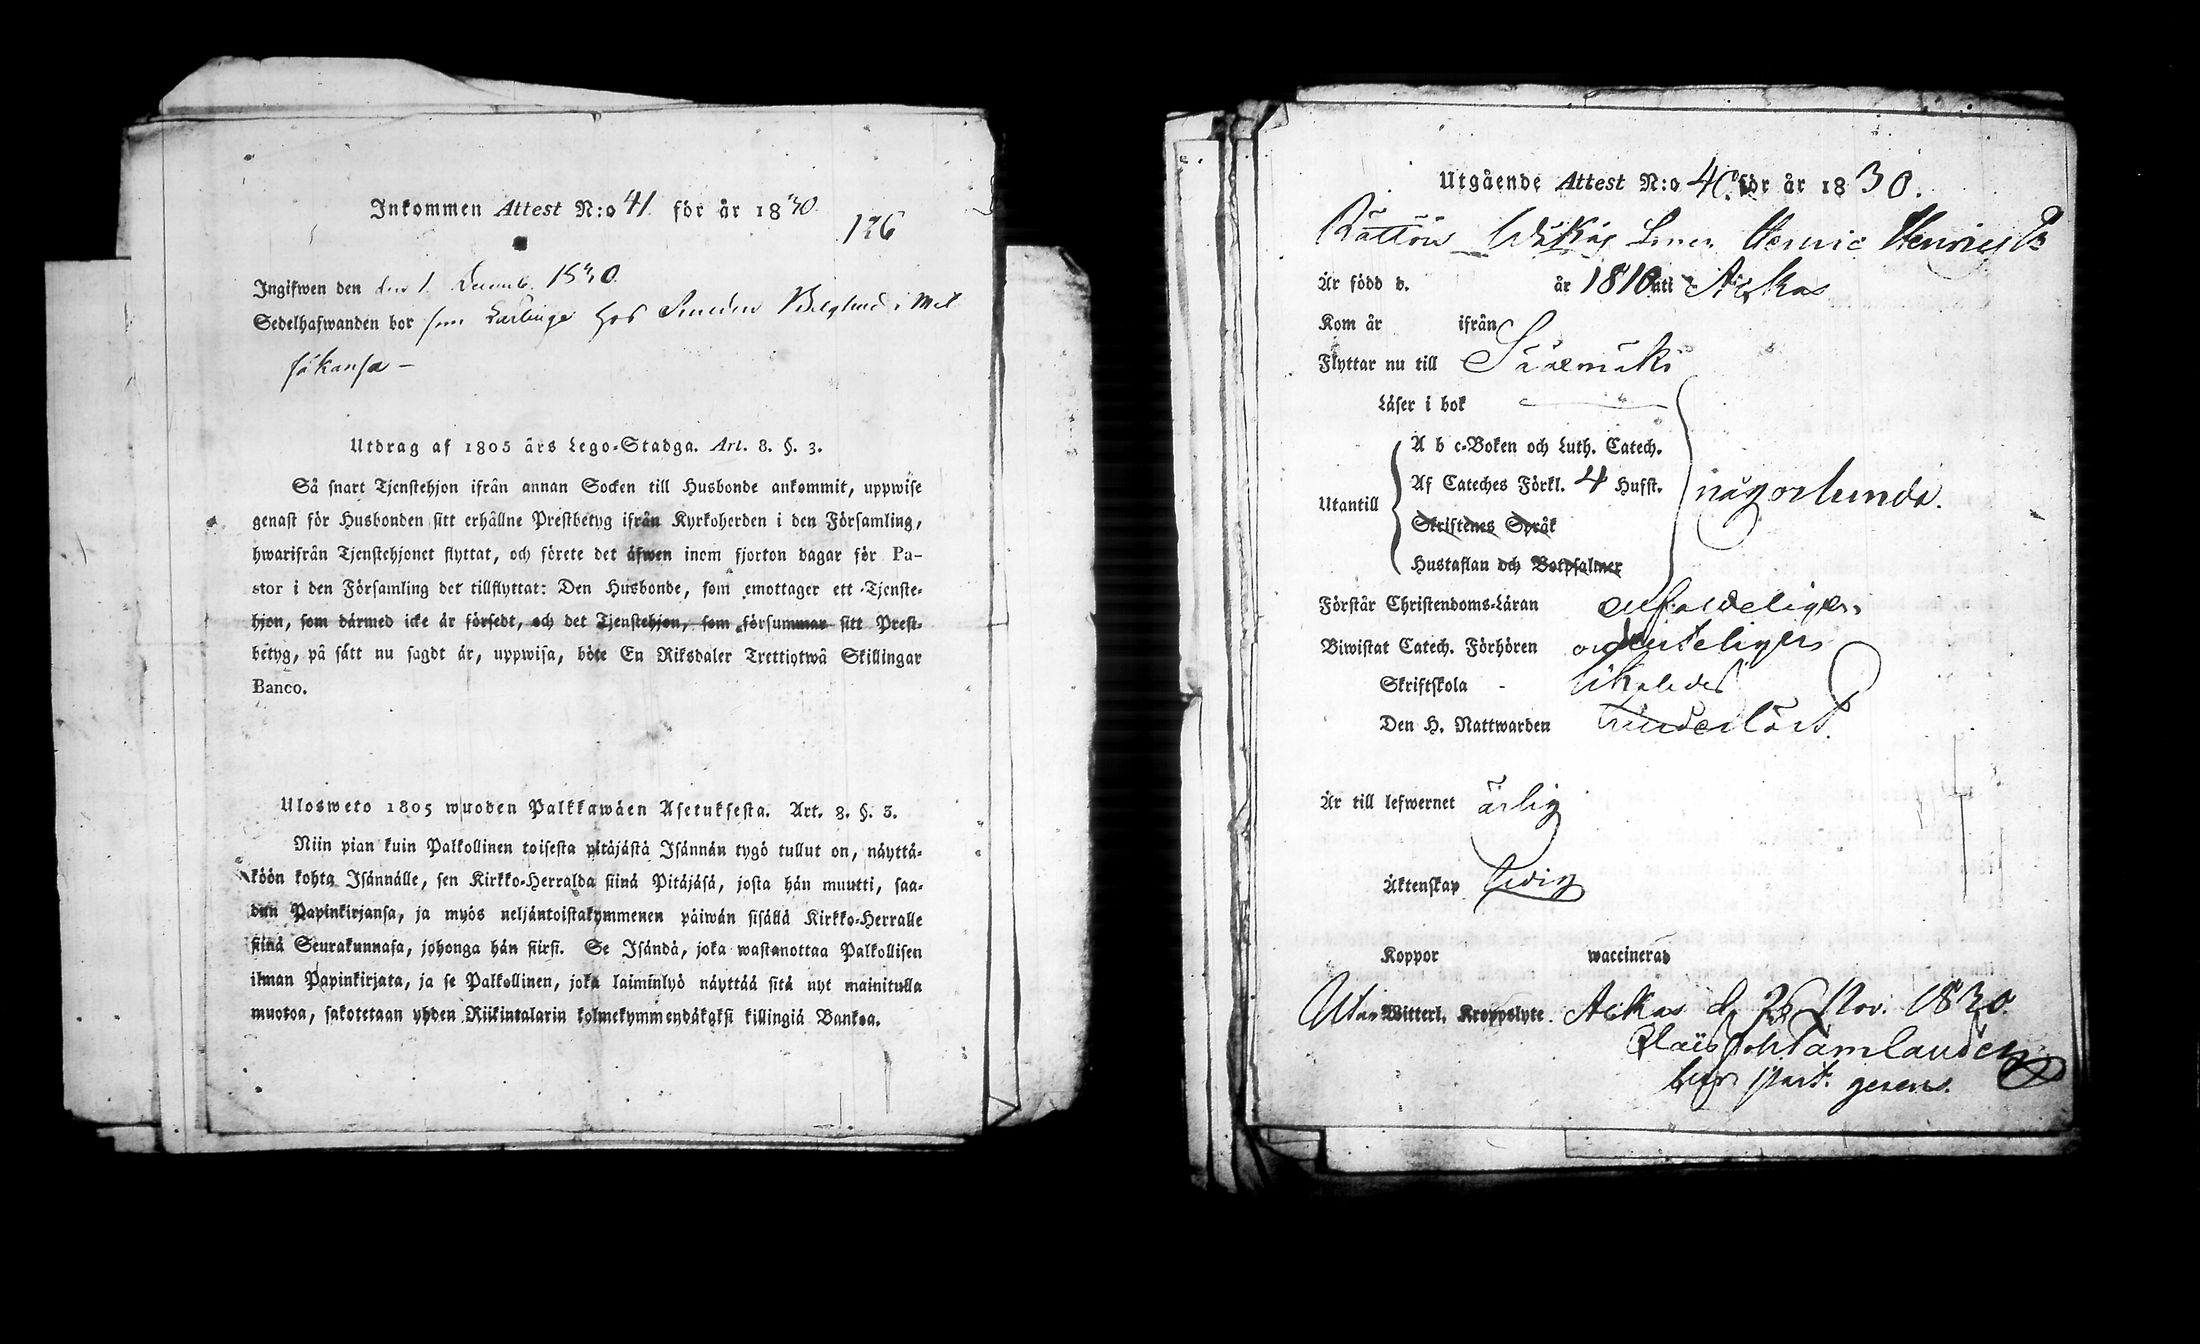 Inkommen Attest N:o 41 för år 1830.
126
Ingifwen den den 1 Decemb. 1830
Sedelhafwanden bor som Lärlinge hos Smeden i Met
säkansa –
Utdrag af 1805 års Lego-Stadga. Art. 8. §. 3.
Så snart Tjenstehjon ifrån annan Socken till Husbonde ankommit, uppwise
genast för Husbonden sitt erhållne Prestbetyg ifrån Kyrkoherden i den Församling,
hwarifrån Tjenstehjonet flyttat, och förete det äfwen inom fjorton dagar för Pa-
stor i den Församling det tillflyttat: Den Husbonde, som emottager ett Tjenste-
hjon, som därmed icke är försedt, och det Tjenstehjon, som försummar sitt Prest-
betyg, på sätt nu sagdt är, uppwisa, böte En Riksdaler Trettiotwå Skillingar
Banco.
Ulosweto 1805 wuoden Palkkawäen Asetuksesta. Art. 8. §. 3.
Niin pian kuin Palkollinen toisesta pitäjästä Isännän tygö tullut on, näyttä-
köön kohta Isännälle, sen Kirkko-Herralda siinä Pitäjäsä, josta hän muutti, saa-
dun Papinkirjansa, ja myös neljäntoistakymmenen päiwän sisällä Kirkko-Herralle
siinä Seurakunnasa, johonga hän siirsi. Se Isändä, joka wastanottaa Palkollisen
ilman Papinkirjata, ja se Palkollinen, joka laiminlyö näyttää sitä nyt mainitulla
muotoa, sakotetaan yhden Riikintalarin kolmekymmendäkaksi killingiä Bankoa.
Utgående Attest N:o 40. för år 1830.
Henric
Är född d. år 1810 uti Ackas
Kom år ifrån
Flyttar nu till Sääxmäki
Läser i bok
Utantill
A b c-Boken och Luth. Catech.
Af Cateches Förkl. 4 Hufst.
Skriftenes Språk
Hustaflan och Botpsalmer
någorlunda.
Förstår Christendoms-Läran enfaldeligen.
Biwistat Catech. Förhören ordenteligen
Skriftskola - likaledes
Den H. Nattwarden
Är till lefwernet ärlig
Äktenskap ledig
Koppor waccinerad
Utan Witterl. Kroppslyte. Ackas d. 28 Nov. 1830.
past. gerens.